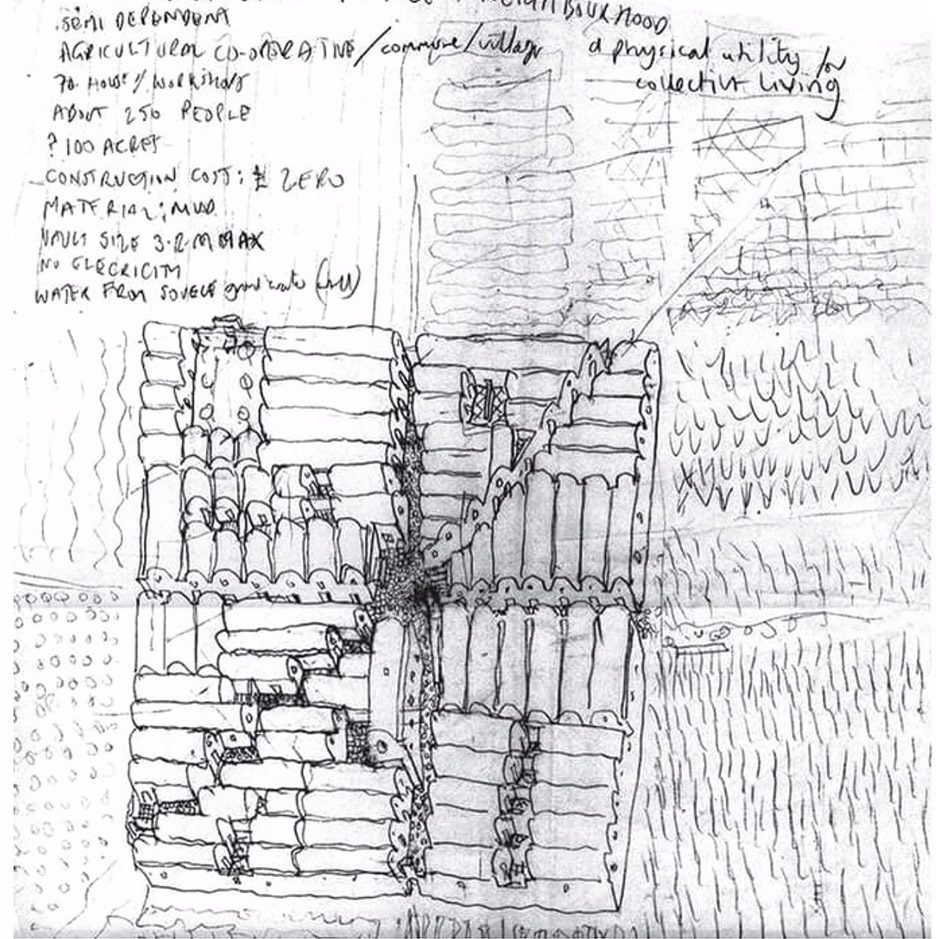 NEIGHBOURHOOD
SEMI DEPENDENT
AGRICULTURAL CO-OPERATIVE/commune/village
a physical utility for
collective living
70 HOUSE/WORKSHOPS
ABOUT 250 PEOPLE
? 100 ACRES
CONSTRUCTION COST: ZERO
MATERIAL: MUD
VAULT SIZE 3.2 M MAX
NO ELECRICITY
WATER FROM ground water (well)